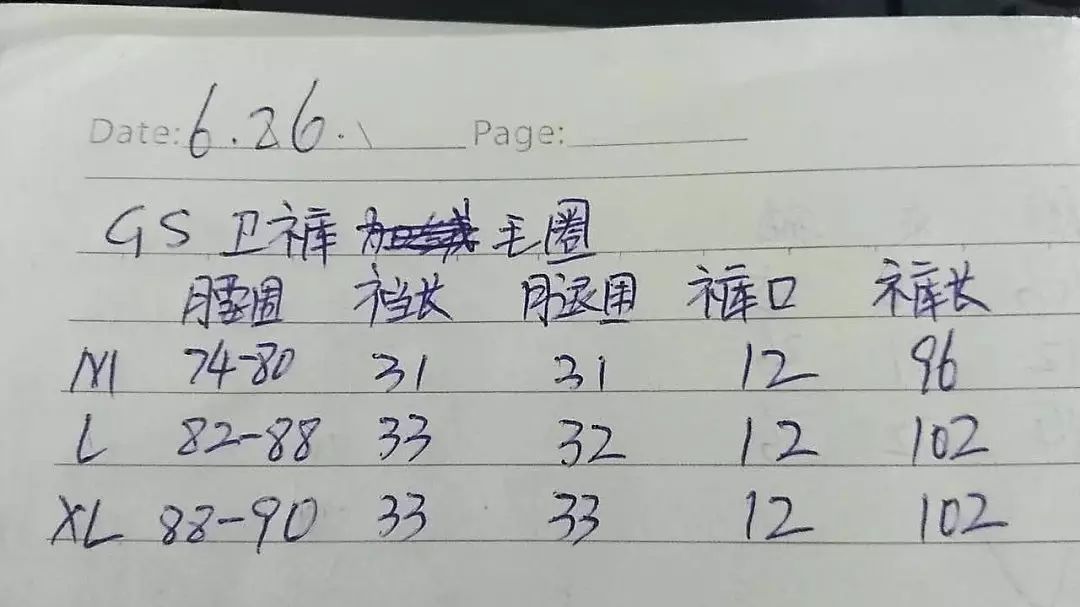 Date: 6.26. Page:
GS 卫裤 毛圈
腰围 裆长 腿围 裤口 裤长
M 74-80 31 31 12 96
L 82-88 33 32 12 102
XL 88-90 33 33 12 102